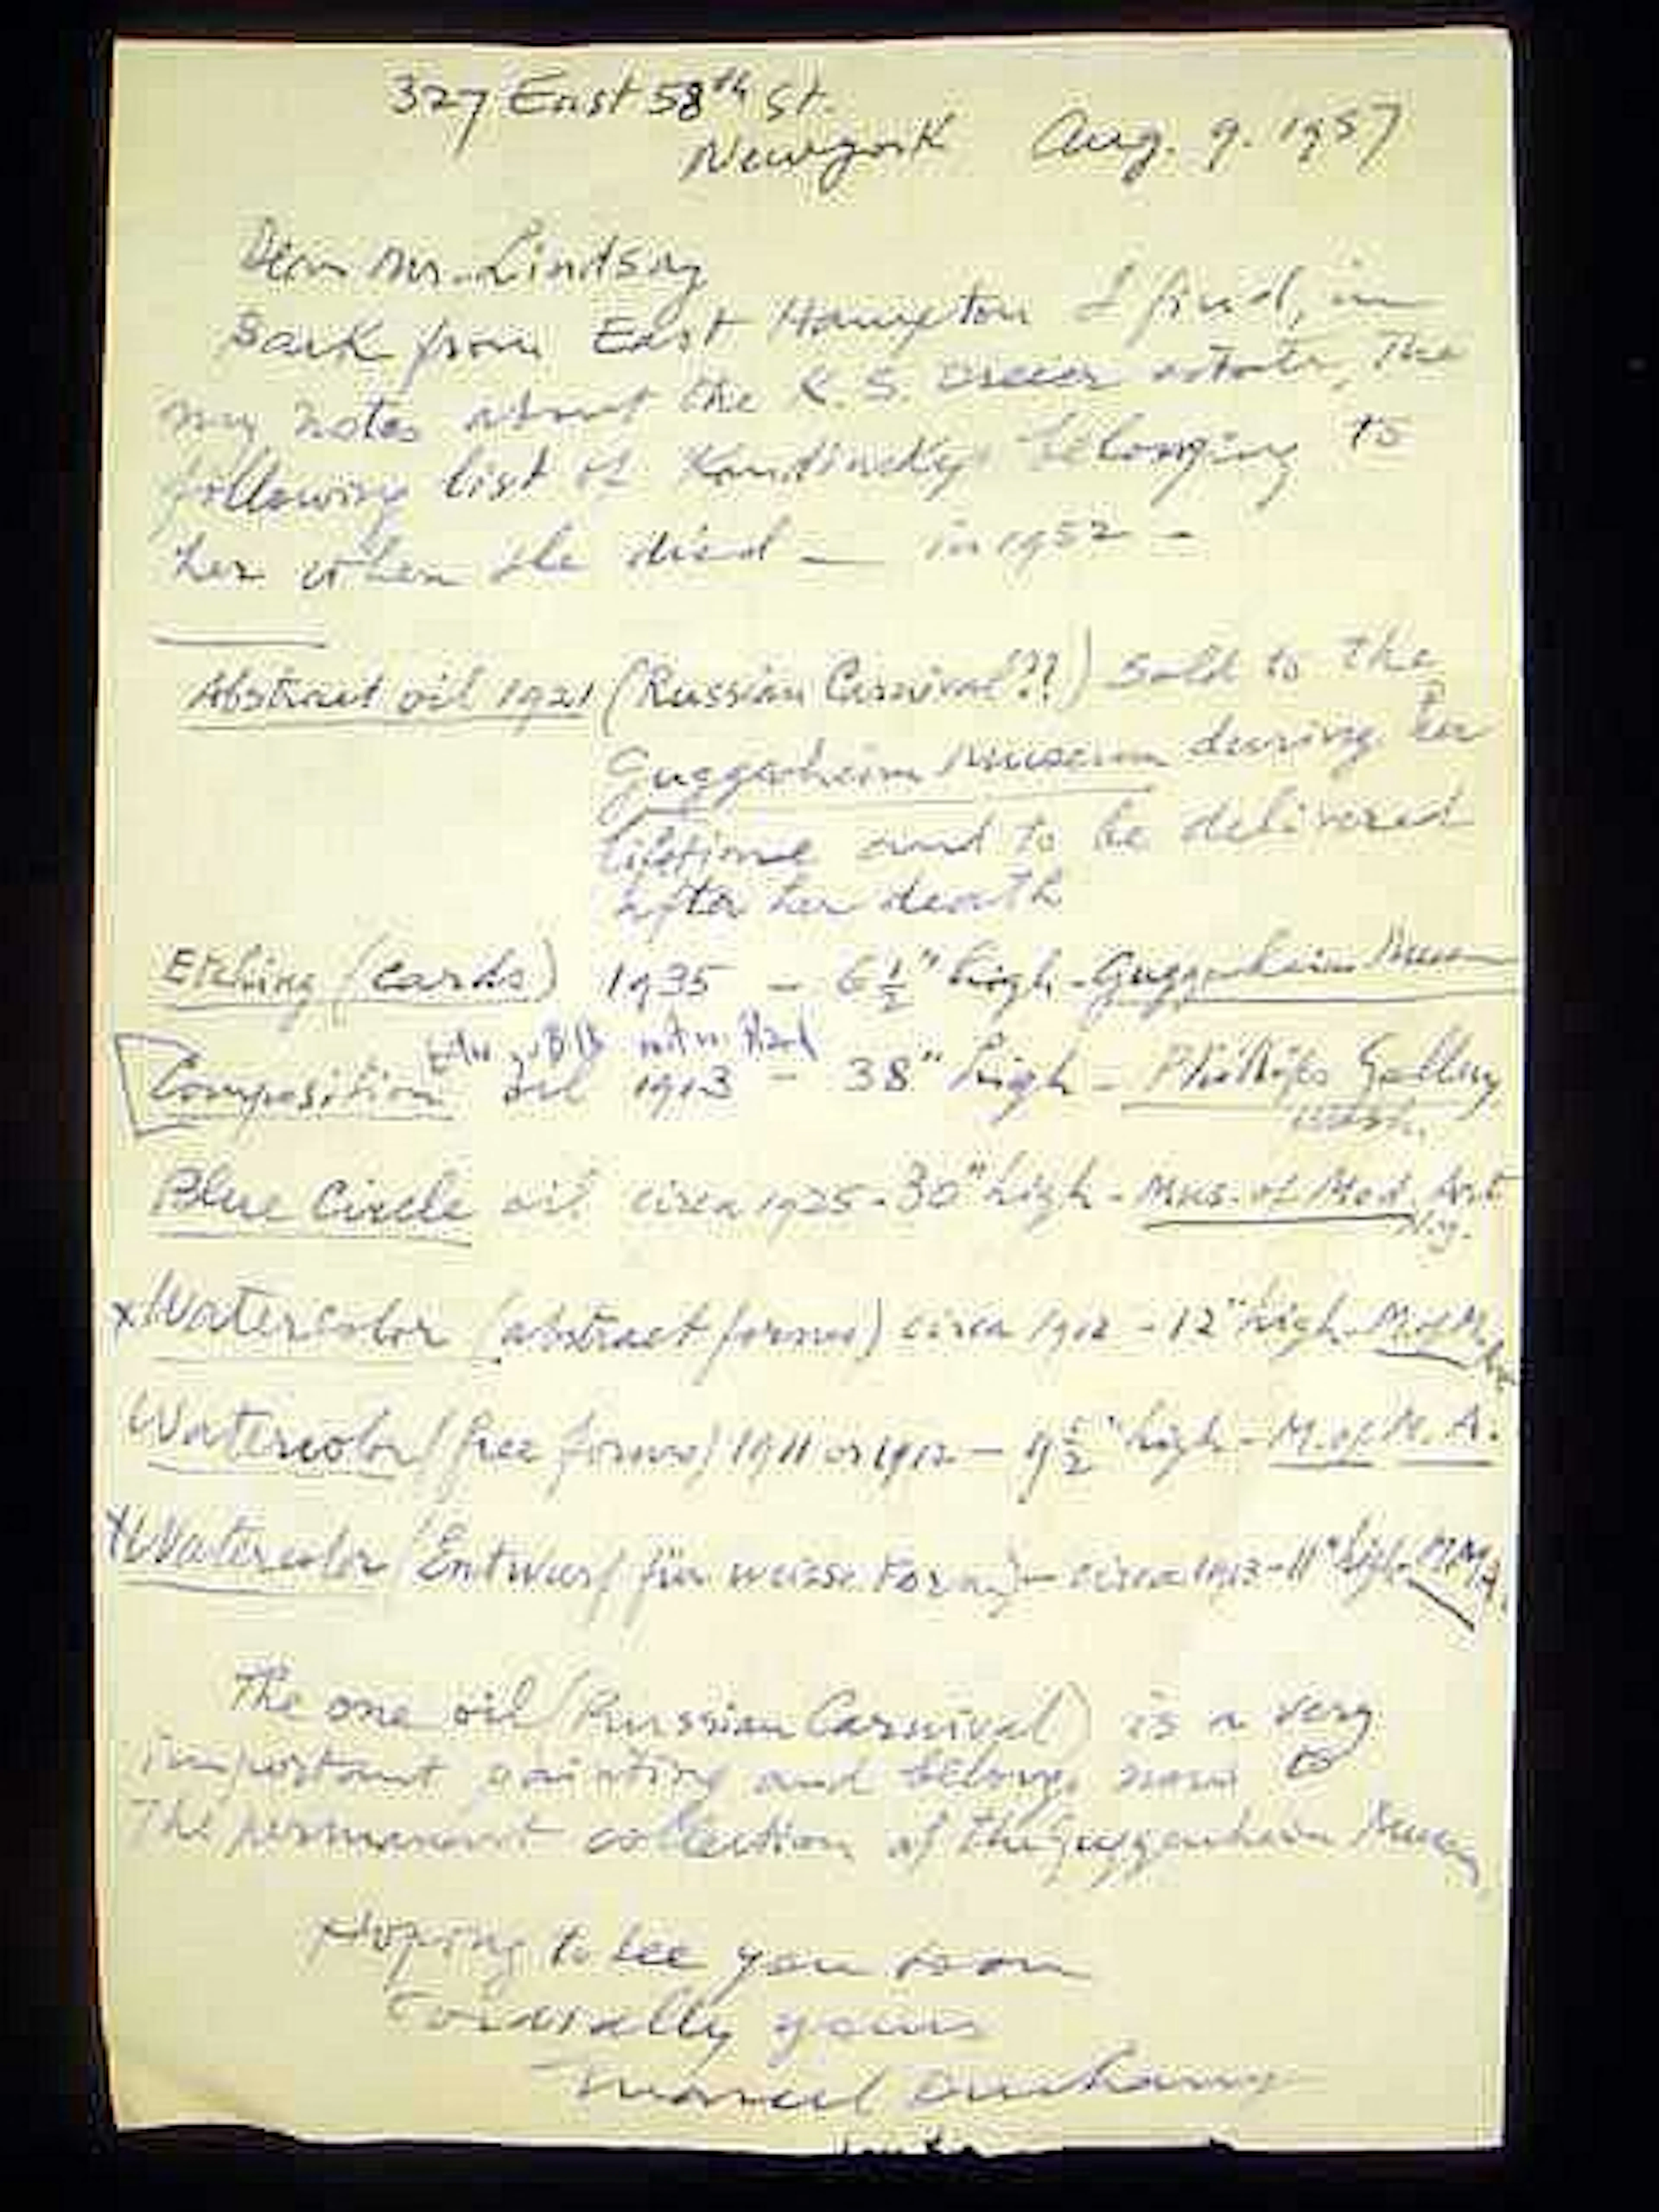 327 East 58th St.
Newyork Aug. 9. 1957
Dear Mr. Lindsay
Back from East Hampton I find, in
my notes about the K. S. Dreier estate, the
following list of Kandinskys belonging to
her when she died — in 1952 —
Abstract oil 1921 (Russian Carnival??) sold to the
Guggenheim Museum during her
lifetime and to be delivered
after her death
Etching (cards) 1935 — 6 1/2" high - Guggenheim Museum
Bild mit
Composition oil 1913 — 38" high — Phillips Gallery
Wash.
Blue Circle oil circa 1925 - 30" high - Mus. of Mod. Art
N.y.
x Watercolor (abstract forms) circa 1912 - 12" high - M. of M.
Watercolor (free forms) 1911 or 1912 — high - M. of M. A.
x Watercolor (Entwurf für weisse Form) — circa 1913 - 11" high - M M A.
The one oil (Russian Carnival) is a very
important painting and belongs now to
the permanent collection of the Guggenheim Museum
Hoping to see you soon
Cordially yours
Marcel Duchamp